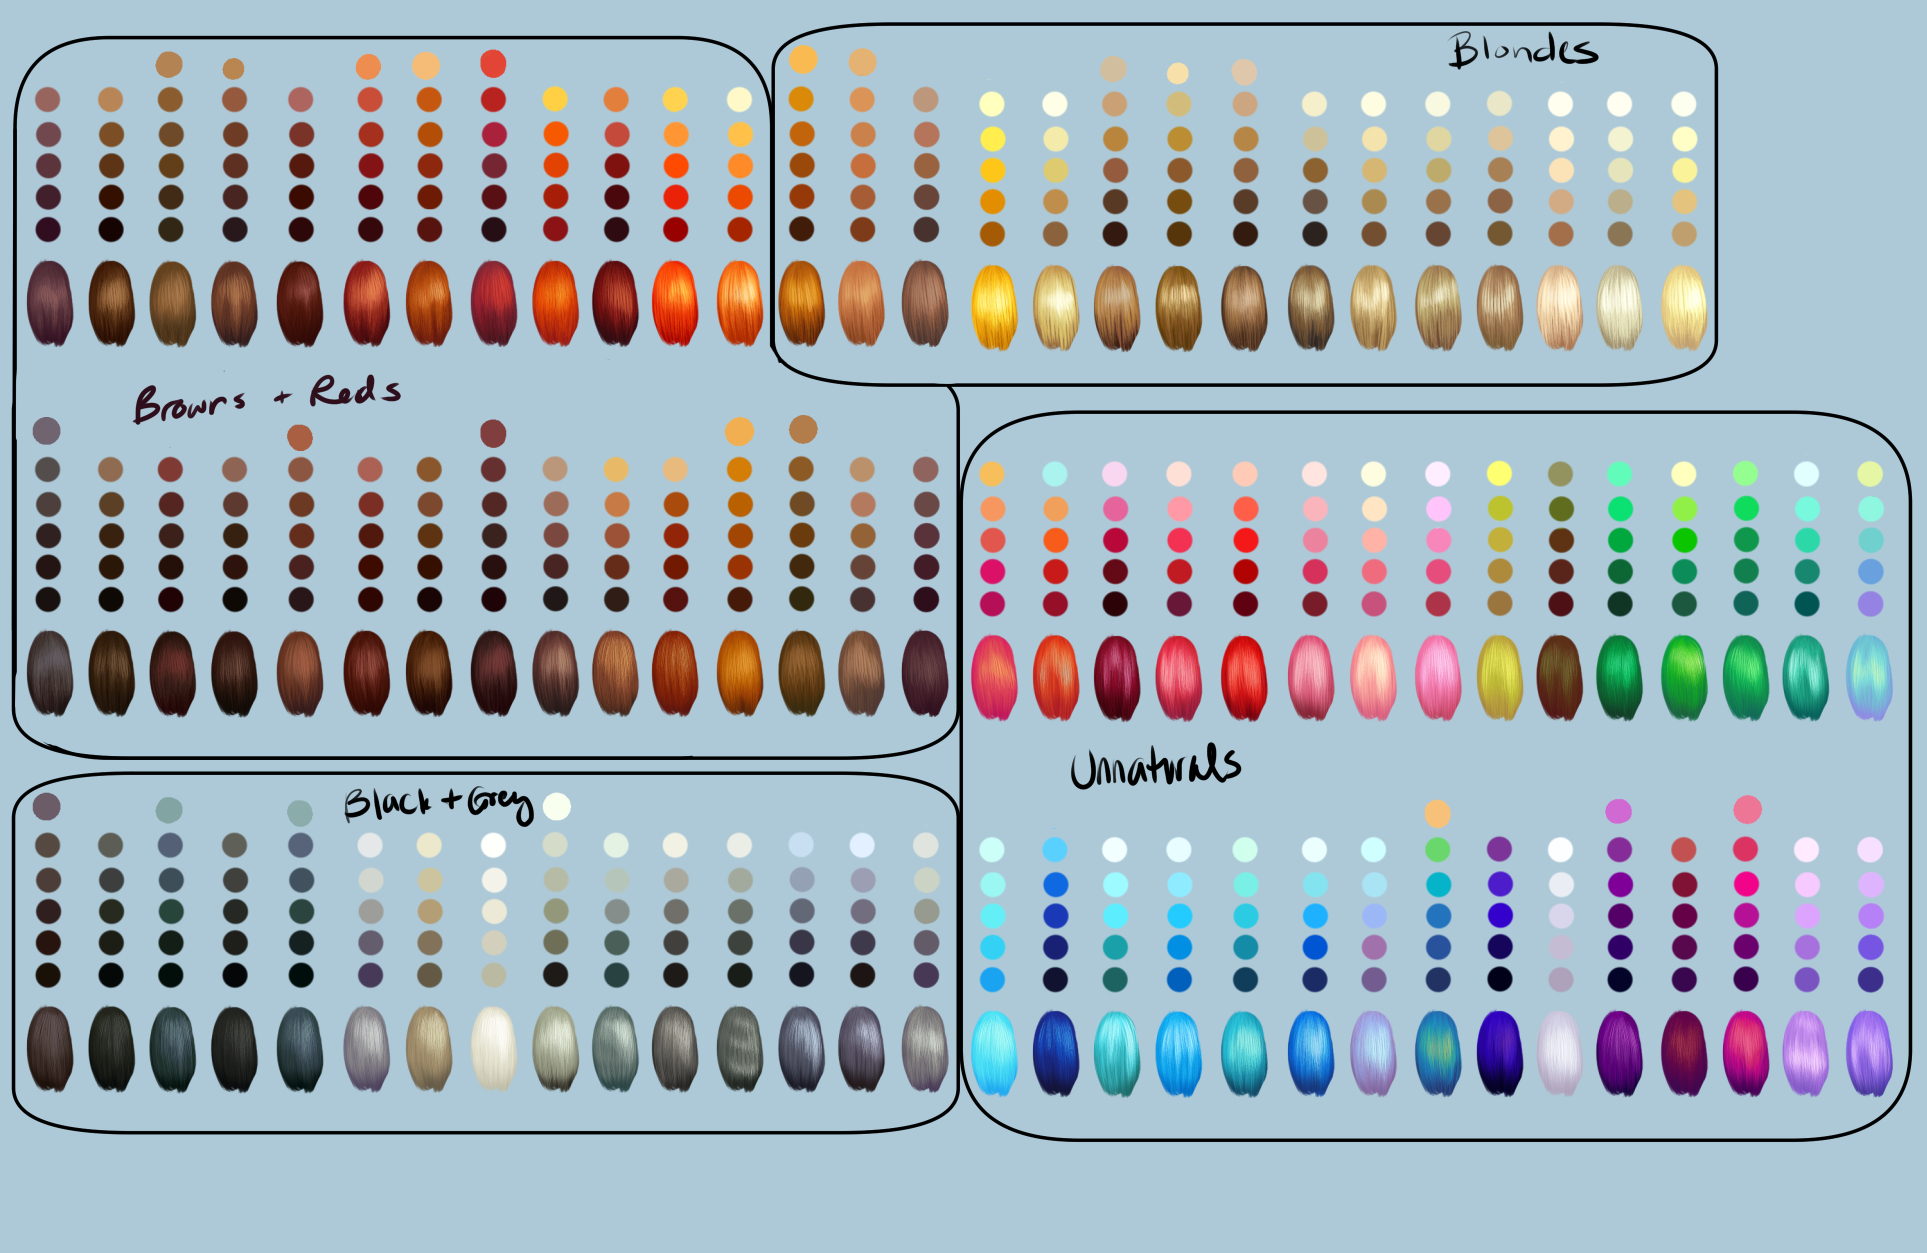 Blondes
Browns + Reds
Unnaturals
Black + Grey